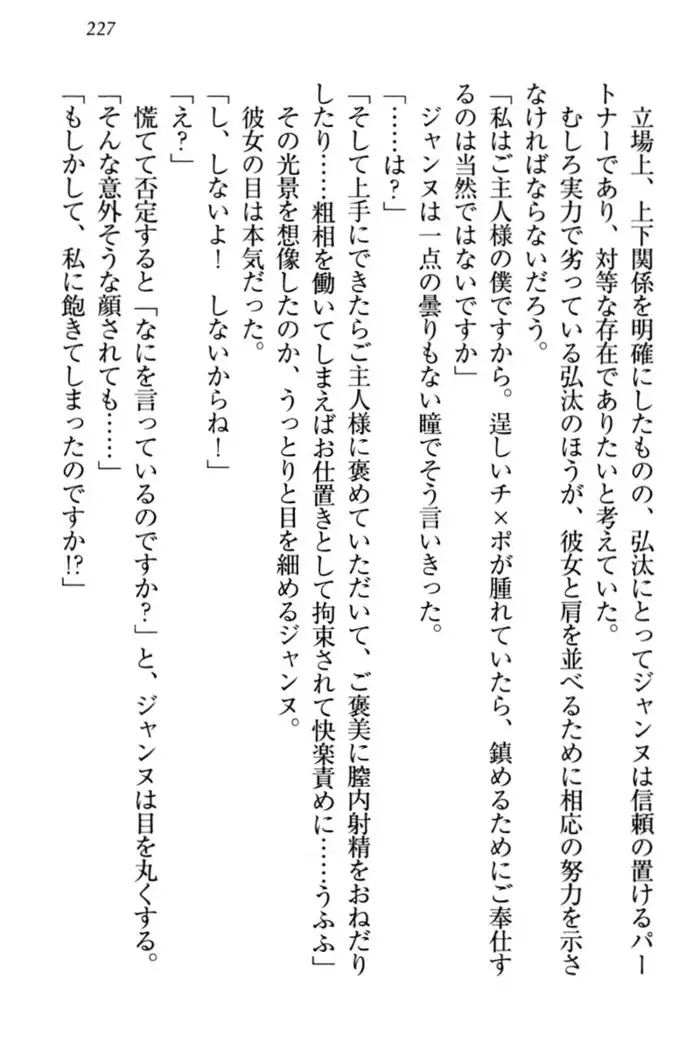 227
立場上、上下関係を明確にしたものの、弘汰にとってジャンヌは信頼の置けるパー
トナーであり、対等な存在でありたいと考えていた。
むしろ実力で劣っている弘汰のほうが、彼女と肩を並べるために相応の努力を示さ
なければならないだろう。
「私はご主人様の僕ですから。逞しいチ×ポが腫れていたら、鎮めるためにご奉仕す
るのは当然ではないですか」
ジャンヌは一点の曇りもない瞳でそう言いきった。
「……は?」
「そして上手にできたらご主人様に褒めていただいて、ご褒美に膣内射精をおねだり
したり……粗相を働いてしまえばお仕置きとして拘束されて快楽責めに……うふふ」
その光景を想像したのか、うっとりと目を細めるジャンヌ。
彼女の目は本気だった。
「し、しないよ! しないからね!」
「え?」
慌てて否定すると「なにを言っているのですか?」と、ジャンヌは目を丸くする。
「そんな意外そうな顔されても……」
「もしかして、私に飽きてしまったのですか!?」